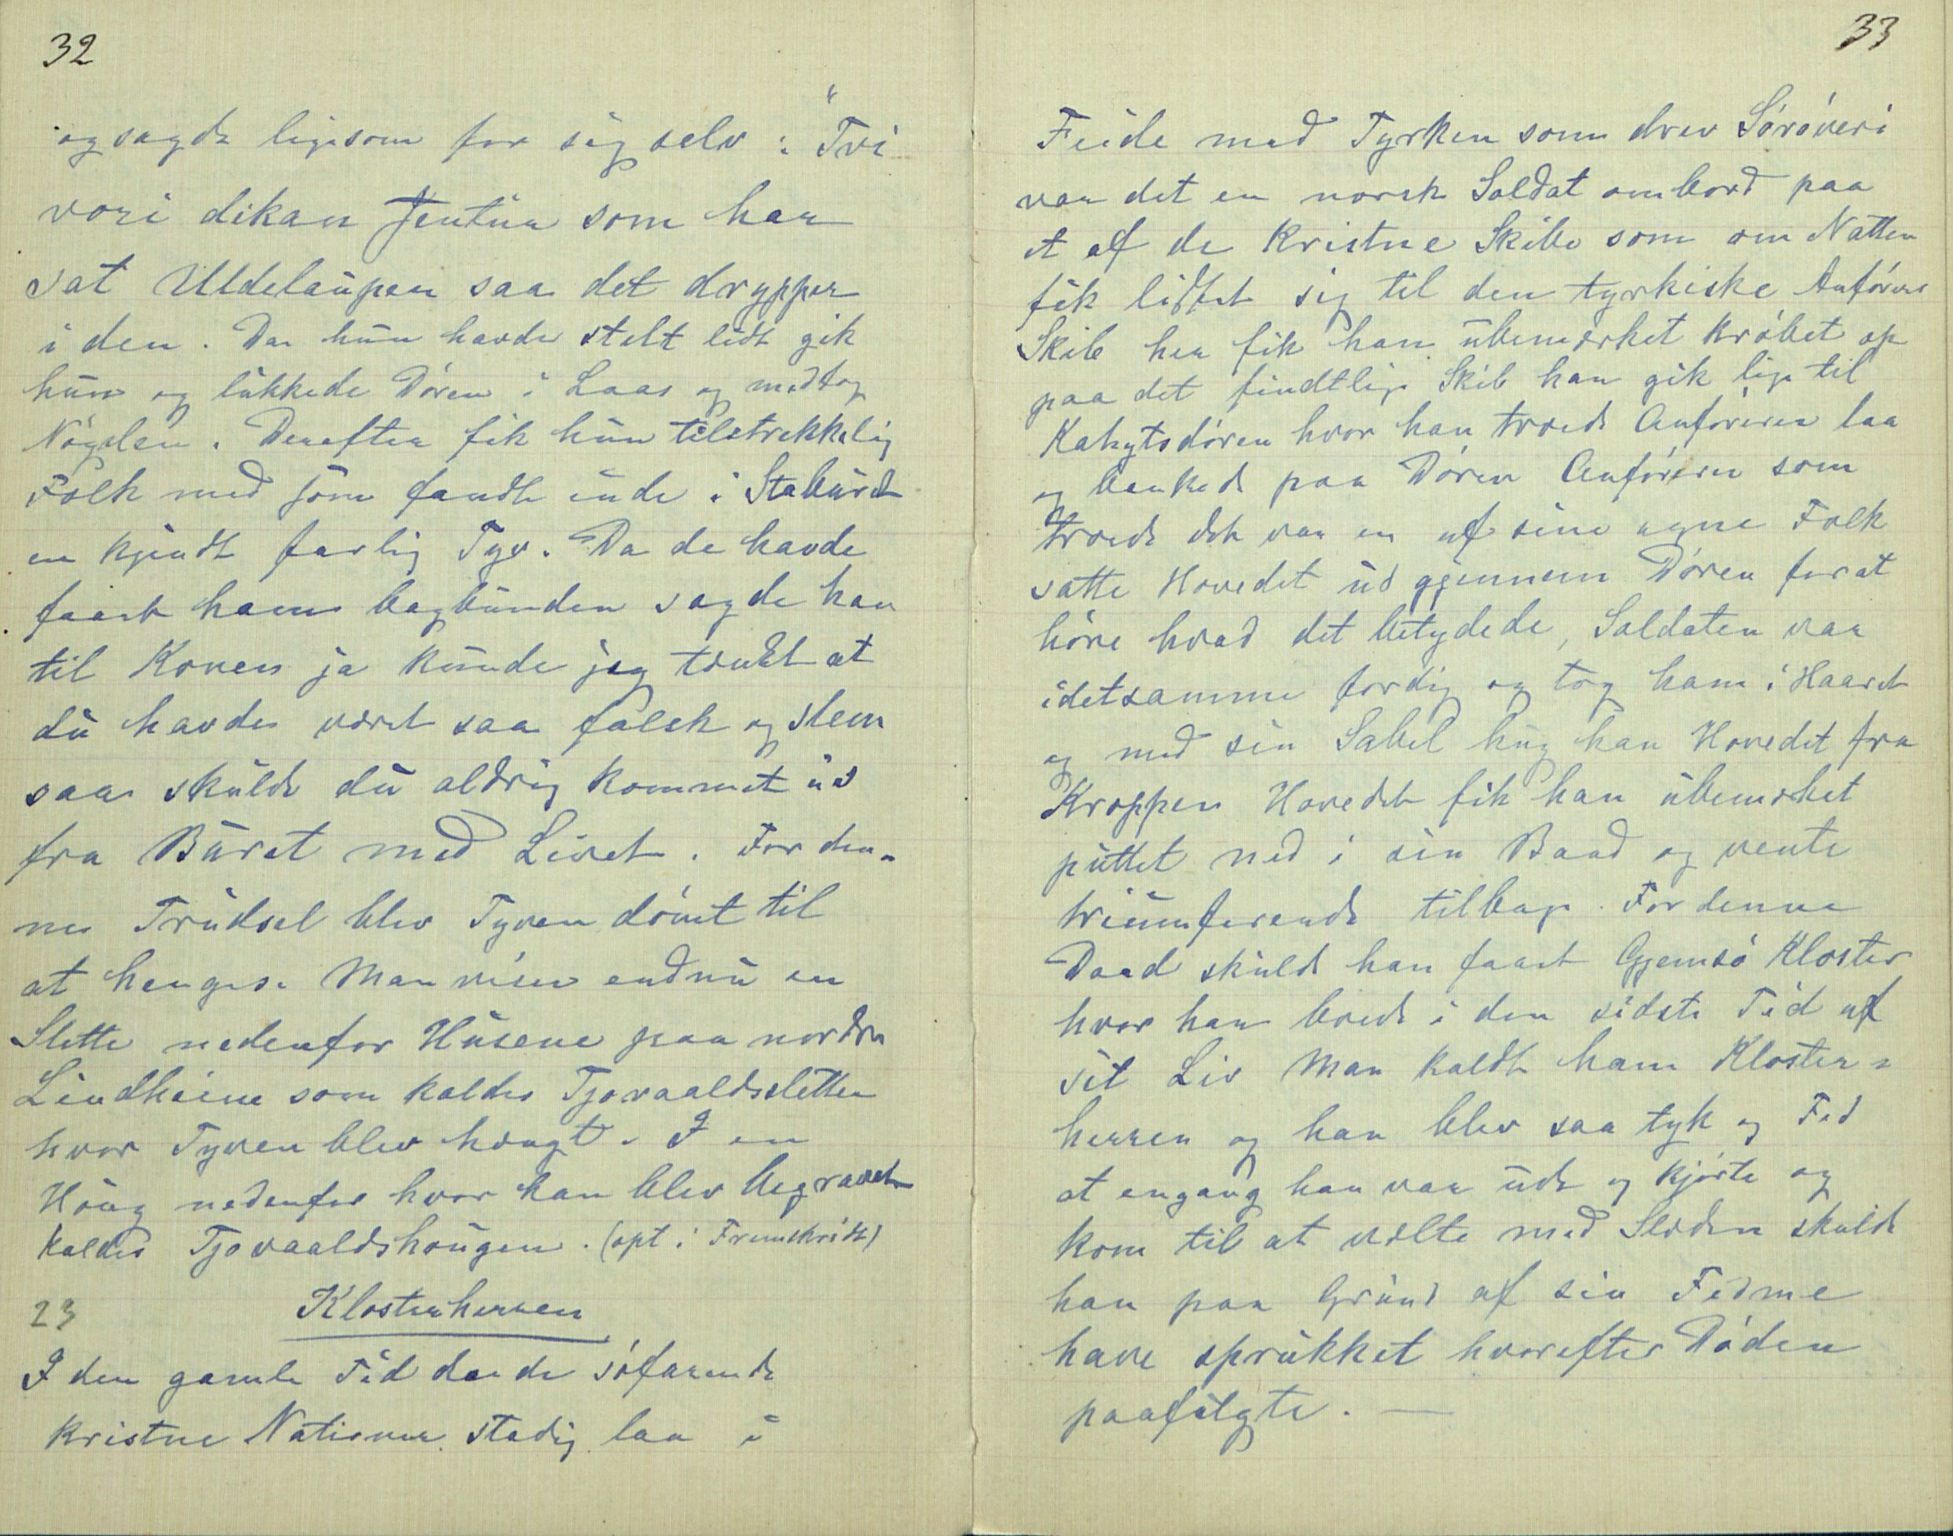 32
og sagde ligesom for sig selv: "Tvi
vori dikan Jentur som har
sat Uldelaupen saa det drypper
i den. Da hun havde stelt lidt gik
hun og lukkede Døren i Laas og medtog
Nøgelen. Derefter fik hun tilstrekkelig
Folk med som fandt inde i Staburet
en kjendt farlig Tyv. Da de havde
faaet ham bagbunden sagde han
til Konen ja kunde jeg tænkt at
du havde været saa falsk og slem
saa skulde du aldrig kommet ud
fra Buret med Livet. For den-
ne Trudsel blev Tyven dømt til
at henges. Man viser endnu en
Slette nedenfor Husene paa nordre
Lindheim som kaldes Tjovaaldsletten
hvor Tyven blev hængt. I en
Houg nedenfor hvor han blev begravet
kaldes Tjovaaldshougen. (opt i Fremskridt)
23 Klosterherren
I den gamle Tid da de søfarende
kristne Nationer stadig laa i
33
Feide med Tyrken som drev Sørøveri
var det en norsk Soldat ombord paa
et af de Kristne Skibe som om Natten
fik listet sig til den tyrkiske Anførers
Skib her fik han ubemærket krøbet op
paa det findtlige Skib han gik lige til
Kahytsdøren hvor han troede Anføreren laa
og bankede paa Døren Anføreren som
troede det var en af sine egne Folk
satte Hovedet ud gjennem Døren forat
høre hvad det betydede, Soldaten var
idetsamme færdig og tog ham i Haaret
og med sin Sabel hug han Hovedet fra
Kroppen Hovedet fik han ubemærket
puttet ned i sin Baad og vente
triumferende tilbage. For denne
Daad skulde han faaet Gjemsø Kloster
hvor han boede i den sidste Tid af
sit Liv Man kaldte ham Kloster=
herren og han blev saa tyk og Fed
at engang han var ude og kjørte og
kom til at vælte med Slæden skulde
han paa Grund af sin Fedme
have sprukket hvorefter Døden
paafulgte. —